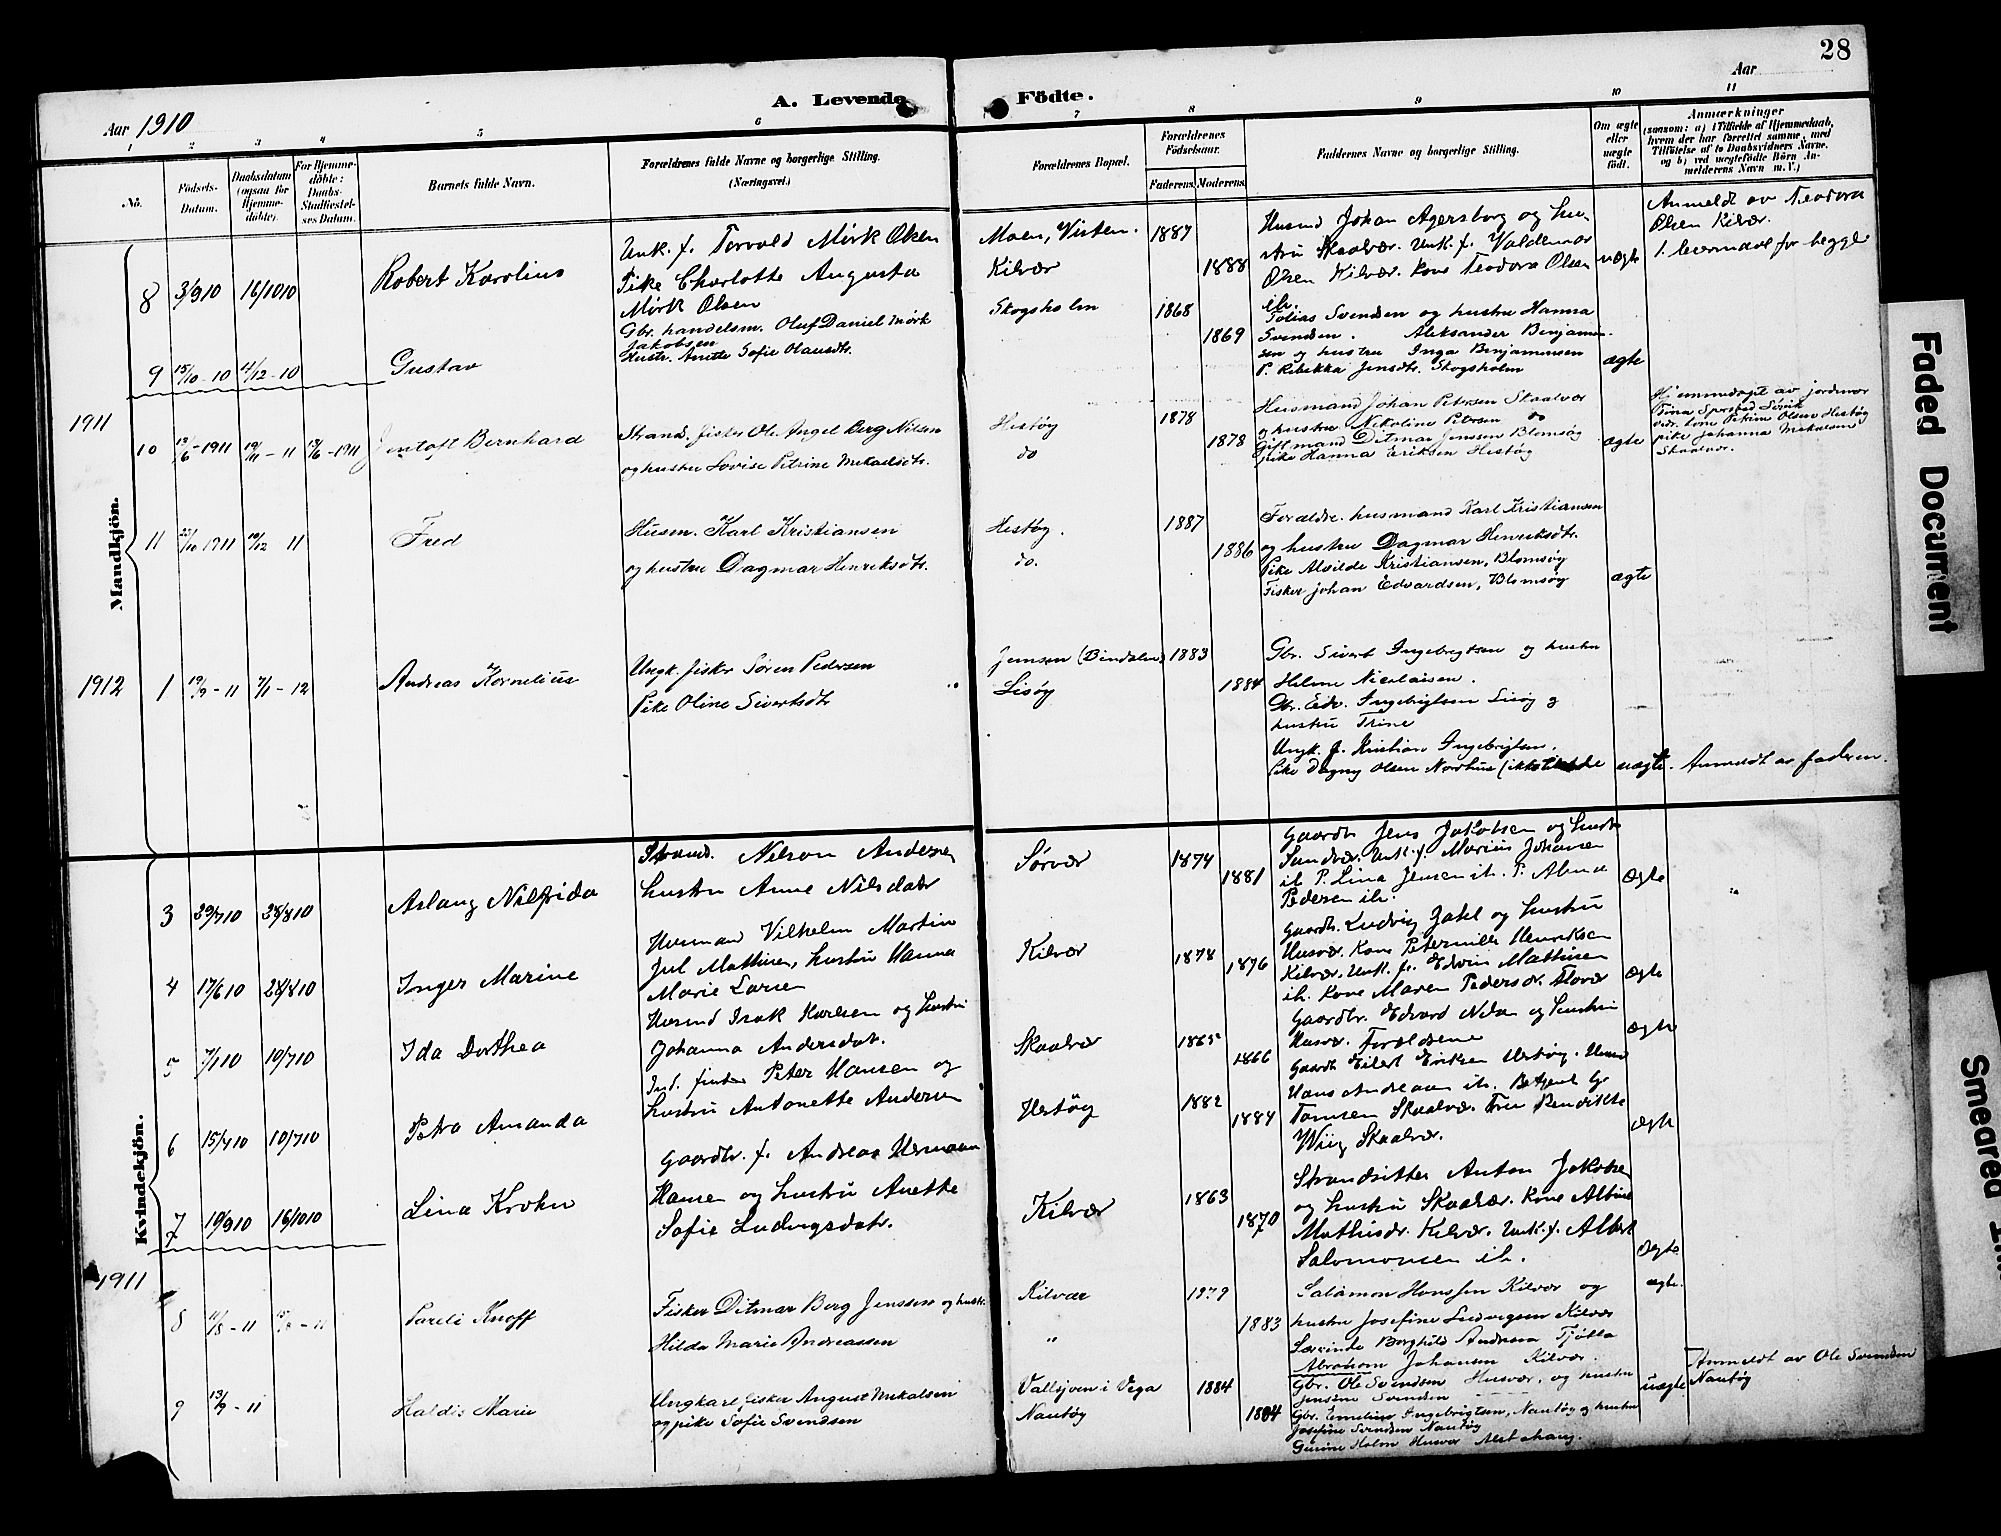 28
Aar 1910
A. Levende Födte.
Aar
1 2 3 4 5 6 7 8 9 10 11
No.
Födsels-Datum.
Daabsdatum (ogsaa for Hjemme-döbte).
For Hjemme-döbte: Daabs-Stadfæstel-ses Datum.
Barnets fulde Navn.
Forældrenes fulde Navne og borgerlige Stilling. (Næringsvei.)
Forældrenes Bopæl.
Forældrenes Födselsaar.
Faderens. Moderens.
Faddernes Navne og borgerlige Stilling.
Om ægte eller uægte födt.
Anmærkninger
(saasom: a) i Tilfælde af Hjemmedaab,
hvem der har forrettet samme, med
Tilföielse af to Daabsvidners Navne,
og b) ved uægtefödte Börn An-
melderens Navn m. V.)
Mandkjön.
8 3/9 10 16/10 10 Robert Karolius
Unk. f. Torvald Mörk Olsen
Pike Charlotte Augusta
Mörk Olsen
Moen, Visten. 1887
Kilvær 1888
Husmd Johan Agersborg og hu-
stru Skaalvær. Unk. f. Valdemar
Olsen Kilvær. Kone Teodora Olsen
ib.
uægte
Anmeldt av Teodora
Olsen Kilvær.
1. leiermaal for begge
9 15/10-10 11/12-10 Gustav
Gbr. handelsm. Oluf Daniel Mörk
Jakobsen
Hustr. Anette Sofie Olausdtr.
Skogsholm 1868 1869
Tobias Svendsen og hustru Hanna
Svendsen. Aleksander Benjamin-
sen og hustru Inga Benjaminsen
P. Rebekka Jensdtr. Skogsholm
ægte
1911
10 /6-1911 19/11-11 /6-1911 Jentoft Bernhard
Strands. fisker Ole Angel Berg Nilsen
og hustru Lovise Petrine Mikalsdtr.
Hestøy 1878
do 1878
Husmand Johan Petersen Skaalvær
og hustru Nikoline Petersen do
Gift mand Ditmar Jenssen Blomsøy
pike Hanna Eriksen Hestøy
ægte
Hjemmedøpt av jordemor
Olsen Hestøy
pike Johanna Mikalsen
Skaalvær.
11 22/10 1911 10/12 11 Fred
Husm. Karl Kristiansen
og hustru Dagmar Henriksdtr.
Hestøy. 1887
do. 1886
Forældre. husmand Karl Kristiansen
og hustru Dagmar Henriksdtr.
Pike Alvilde Kristiansen, Blomsøy
Fisker Johan Edvardsen, Blomsøy
ægte
1912
1 19/9-11 7/1-12 Andreas Kornelius
Ungk. fisker Søren Pedersen
Pike Oline Sivertsdtr
(Bindalen) 1883
Lisøy 1884
Gbr. Sivert Ingebrigtsen og hustru
Helene Nicolaisen.
Gbr. Edv. Ingebrigtsen Lisøy og
hustru Trine
Ungk. f. Kristian Ingebrigtsen.
Pike Dagny Olsen Nordhus (ikke
uægte. Anmeldt av faderen.
Kvindekjön.
3 29/7 10 28/8 10 Aslaug Nilfrida
Strand. Nilson Andersen
hustru Anne Nilsdatr
Sørvær 1874 1881
Gaardbr. Jens Jakobsen og hustr.
Sandvær. Unk. f. Marius Johansen
ib. P. Lina Jensen ib. P. Alma
Pedersen ib.
Ægte
4 17/6 10 28/8 10 Inger Marine
Husman Vilhelm Martin
Jul Mathisen, hustru Hanna
Marie Larsen
Kilvær 1878 1876
Gaardb. Ludvig Zahl og hustru
Husvær. Kone Petermille Henriksen
Kilvær. Unk. f. Edvin Mathisen
ib. Kone Maren Pedersdr. Flovær
ægte
5 7/1 10 10/7 10 Ida Dorthea
Husmd Isak Karlsen og hustru
Johanna Andersdatr.
Skaalvær 1865 1866
Gaardbr. Edvard Nilsen og hustru
Husvær. Forældrene
ægte
6 15/4 10 10/7 10 Petra Amanda
Ind. fisker Peter Hansen og
hustru Antonette Andersen
Hestøy 1882 1884
Gaardb Eilert Eriksen Hestøy. Husm
Hans Andreasen ib. Betjent G.
Tomsen Skaalvær. Frøk Bendikte
Wiig Skaalvær.
ægte
7 19/9 10 16/10 10 Lina Krohn
Gaardbr. f. Andreas Herman
Hansen og hustru Anette
Sofie Ludvigsdatr.
Kilvær 1863 1870
Strandsitter Anton Jakobsen
og hustru Skaalvær. Kone Albine
Mathisdr. Kilvær. Unk. f. Albert
Salomonsen ib.
Ægte
1911
8 11/8-11 Pareli Knoff
Fisker Ditmar Berg Jenssen og hustr.
Hilda Marie Andreassen
Kilvær 1879
" 1883
Salamon Hanssen Kilvær og
hustru Josefine Ludvigsen Kilvær
Lærerinde Borghild Andresen Tjøtta
Abraham Johansen Kilvær.
ægte.
9 13/9-11 Haldis Marie
Ungkarl fisker August Mikalsen
og pike Sofie Svendsen
Vallsjøen i Vega 1884
Nautøy 1884
Gbr. Ole Svendsen Husvær, og hustru
Jensine Svendsen
Gbr. Emelius Ingebrigtsen, Nautøy og hustru
Josefine Svendsen Nautøy
Gusine Holm Husvær Alstahaug.
uægte
Anmeldt av Ole Svendsen
Nautøy
Faded Document
Smeared